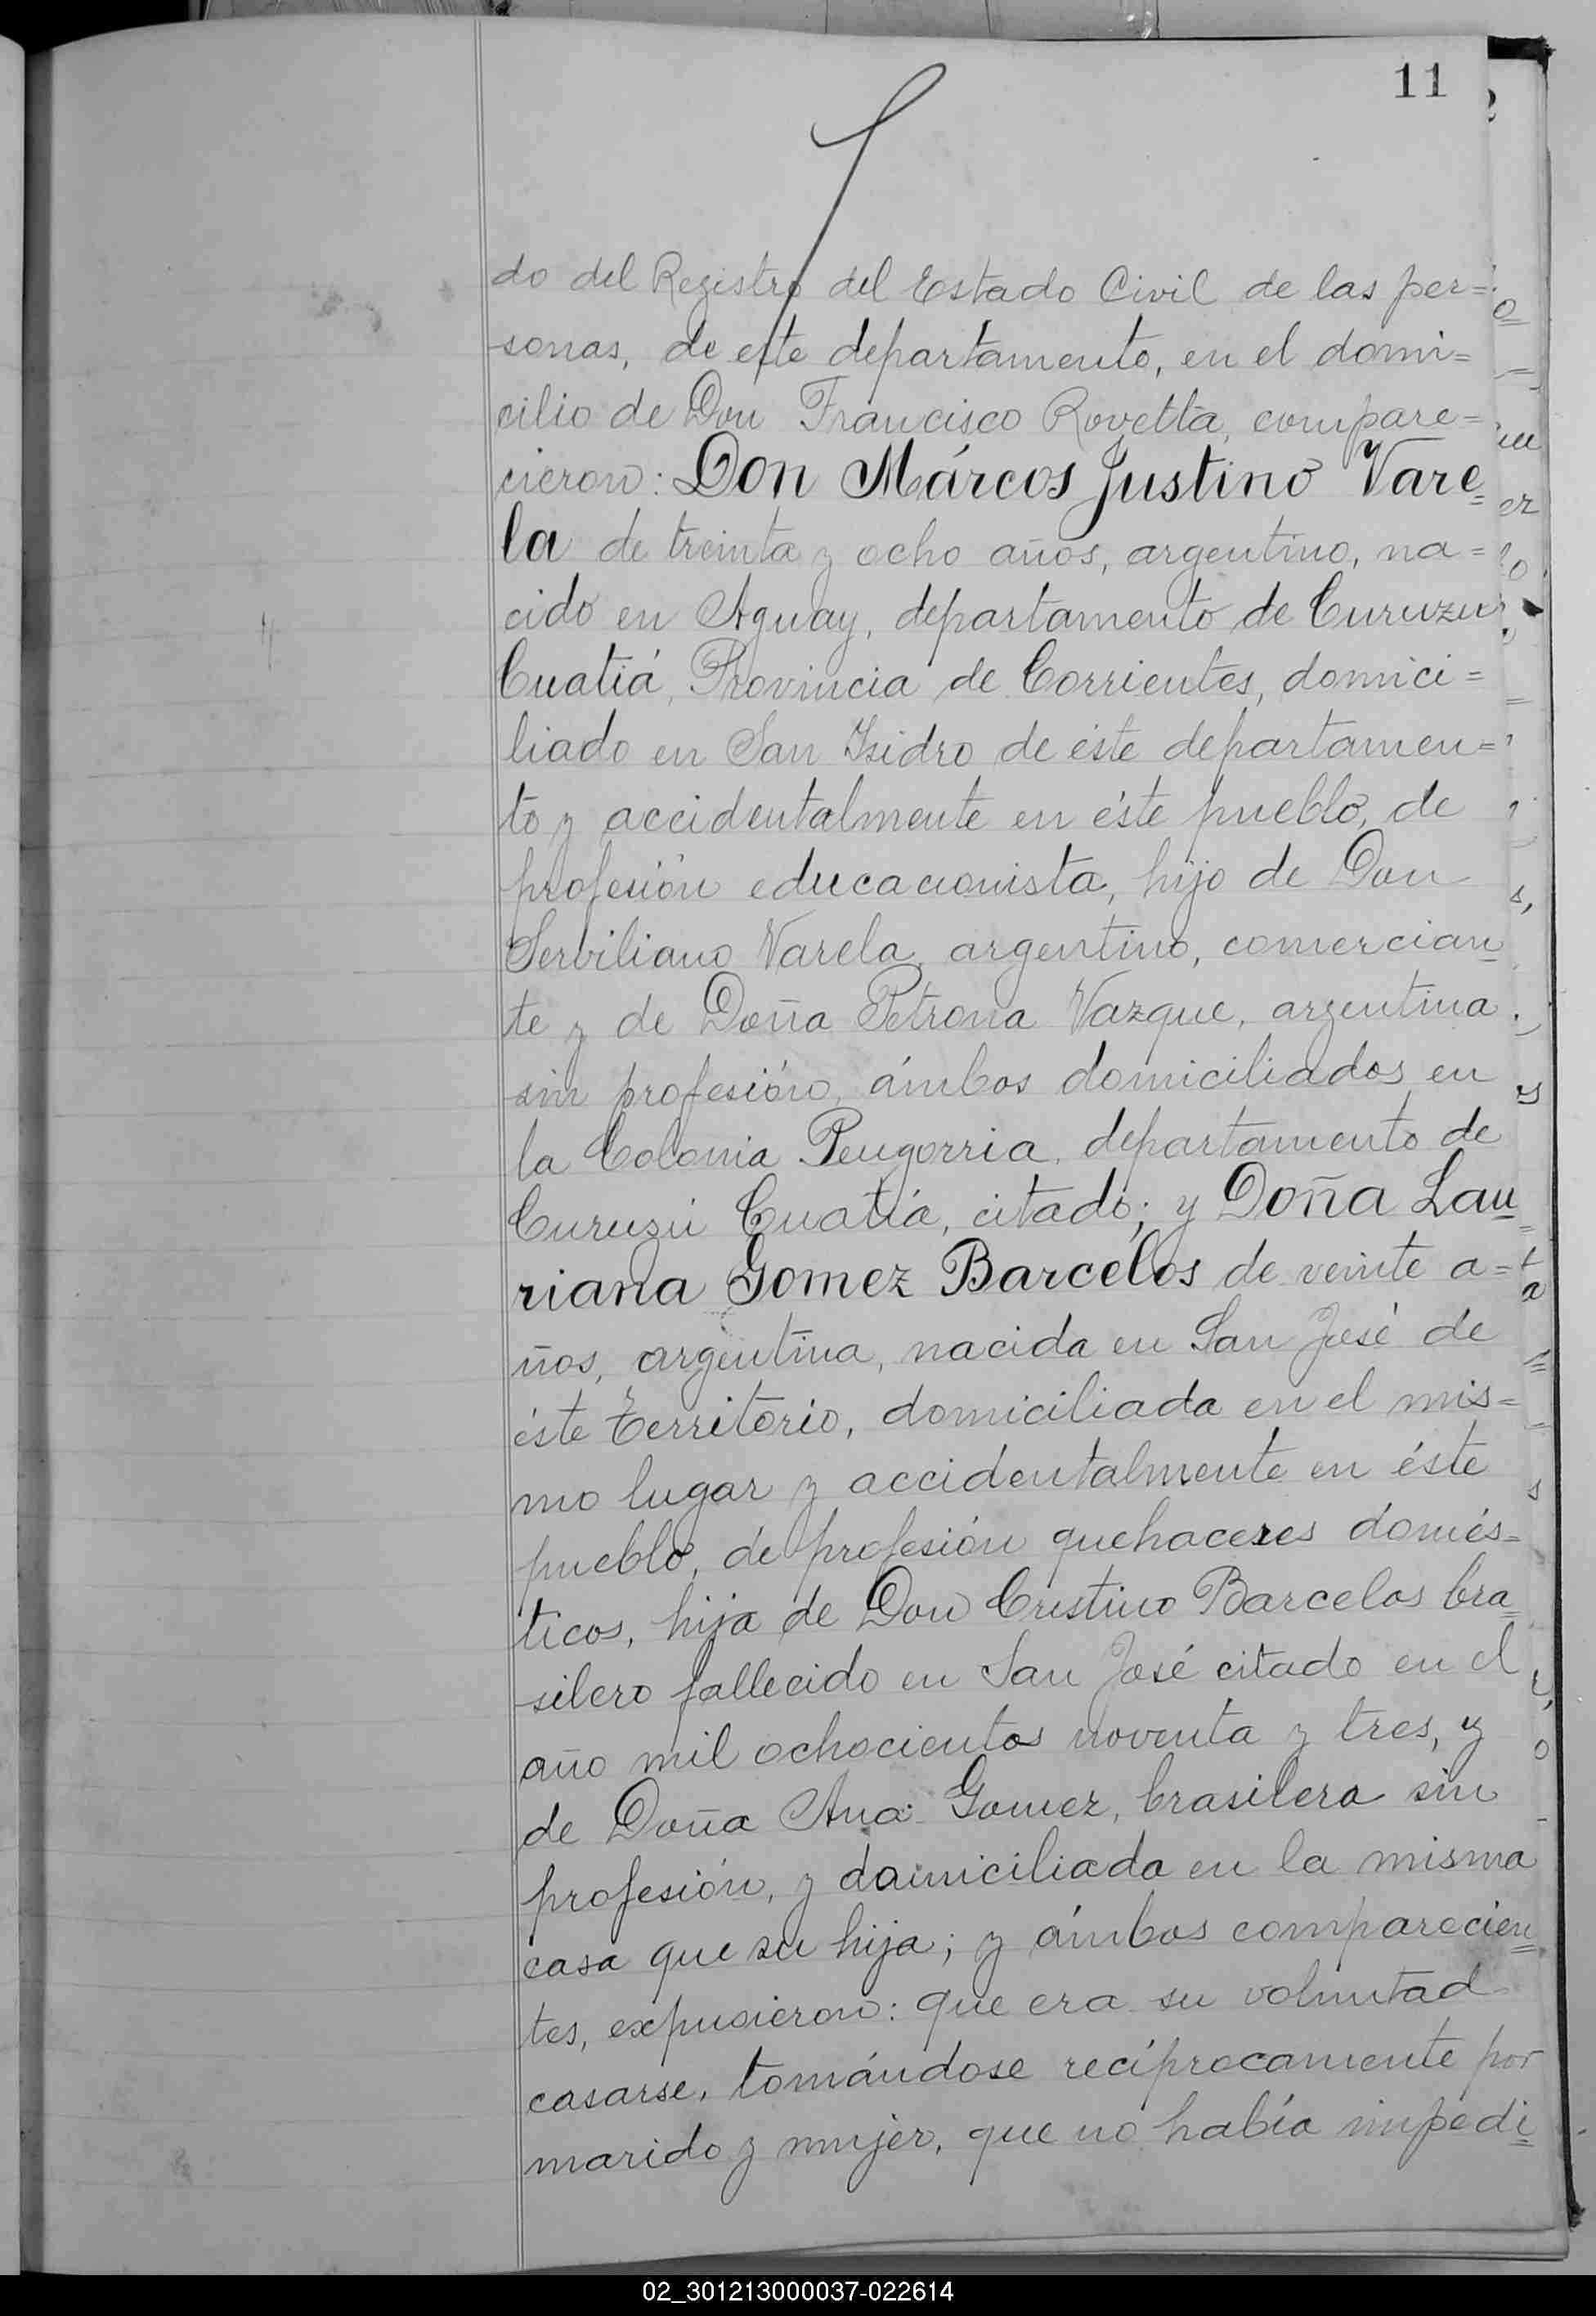 11
do del Registro del Estado Civil de las per=
sonas, de este departamento, en el domi=
cilio de Don Francisco Rovetta, compare=
cieron: Don Márcos Justino Vare=
la de treinta y ocho años, argentino, na=
cido en Aguay, departamento de Curuzu
Cuatiá, Provincia de Corrientes, domici=
liado en San Isidro de éste departamen=
to y accidentalmente en éste pueblo, de
profesión educacionista, hijo de Don
Serbiliano Varela, argentino, comercian=
te y de Doña Petrona Vazque, argentina
sin profesión, ámbos domiciliados en
la Colonia Peugorria, departamento de
Curuzú Cuatiá, citado; y Doña Lau=
riana Gomez Barcelos de veinte a=
ños, argentina, nacida en San José de
éste territorio, domiciliada en el mis=
mo lugar y accidentalmente en éste
pueblo, de profesión quehaceres domés=
ticos, hija de Don Cristino Barcelos bra=
silero fallecido en San José citado en el
año mil ochocientos noventa y tres, y
de Doña Ana Gomez, brasilera sin
profesión, y domiciliada en la misma
casa que su hija; y ámbos comparecien=
tes, expusieron: que era su voluntad
casarse, tomándose recíprocamente por
marido y mujer, que no había impedi=
02_301213000037-022614